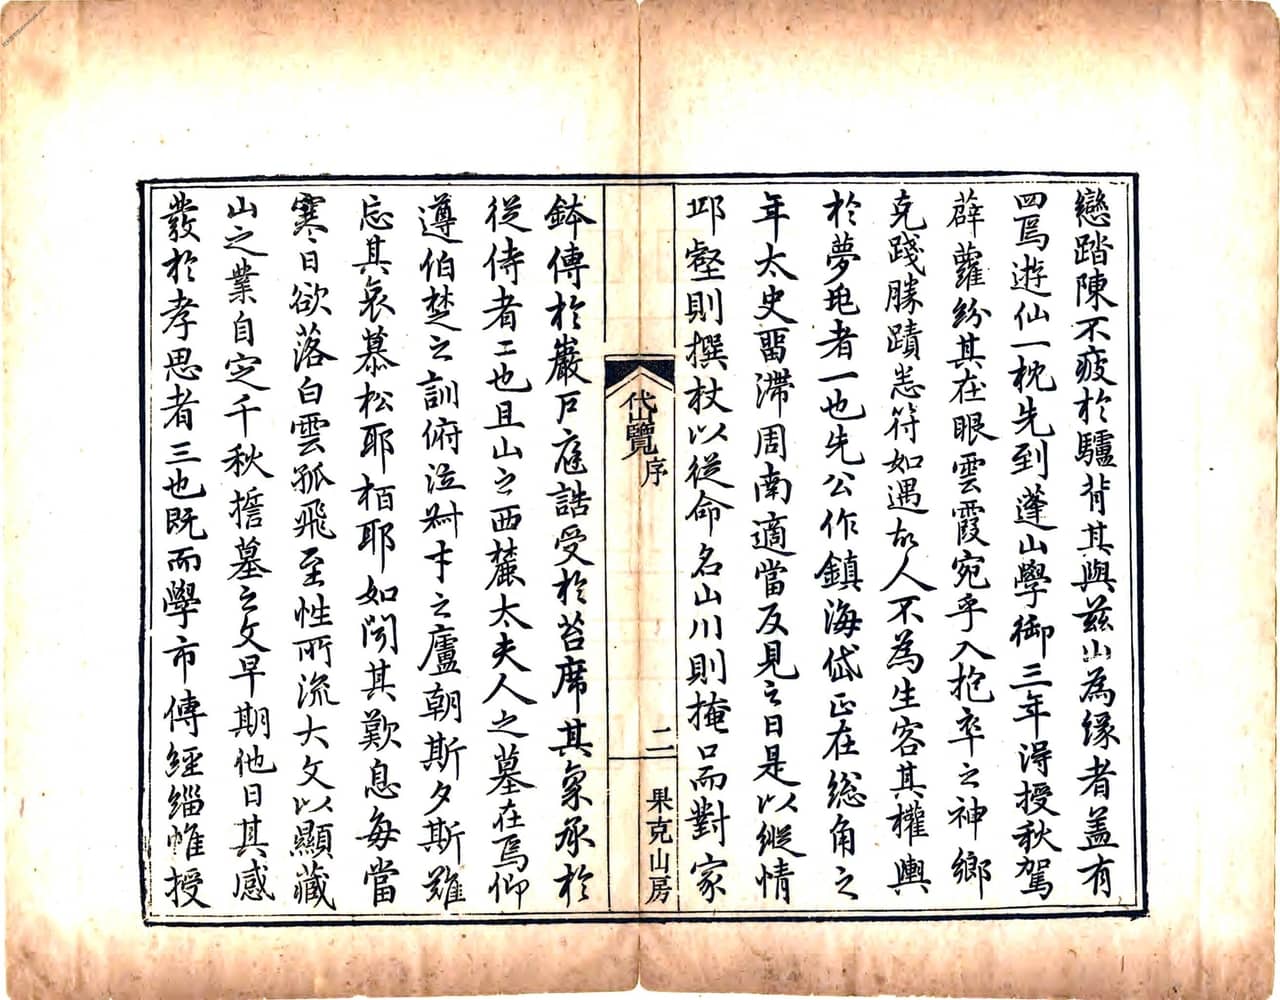 戀踏陳不疲於驢背其與茲山為緣者蓋有
四焉遊仙一枕先到蓬山學御三年得授秋駕
薜蘿紛其在眼雲霞宛乎入抱卒之神鄉
克踐勝蹟恙符如遇故人不為生客其權輿
於夢寐者一也先公作鎮海岱正在總角之
年太史畱滯周南適當反見之日是以縱情
邱壑則撰杖以從命名山川則掩口而對家
代山覽
序
二
果克山房
鉢傳於巖戶庭誥受於苔席其氣承於
從侍者二也且山之西麓太夫人之墓在焉仰
遵伯楚之訓俯泣之廬朝斯夕斯雖
忘其哀慕松耶栢耶如聞其歎息每當
寒日欲落白雲孤飛至性所流大文以顯藏
山之業自定千秋擔墓之文早期他日其感
發於孝思者三也既而學市傳經緇帷授